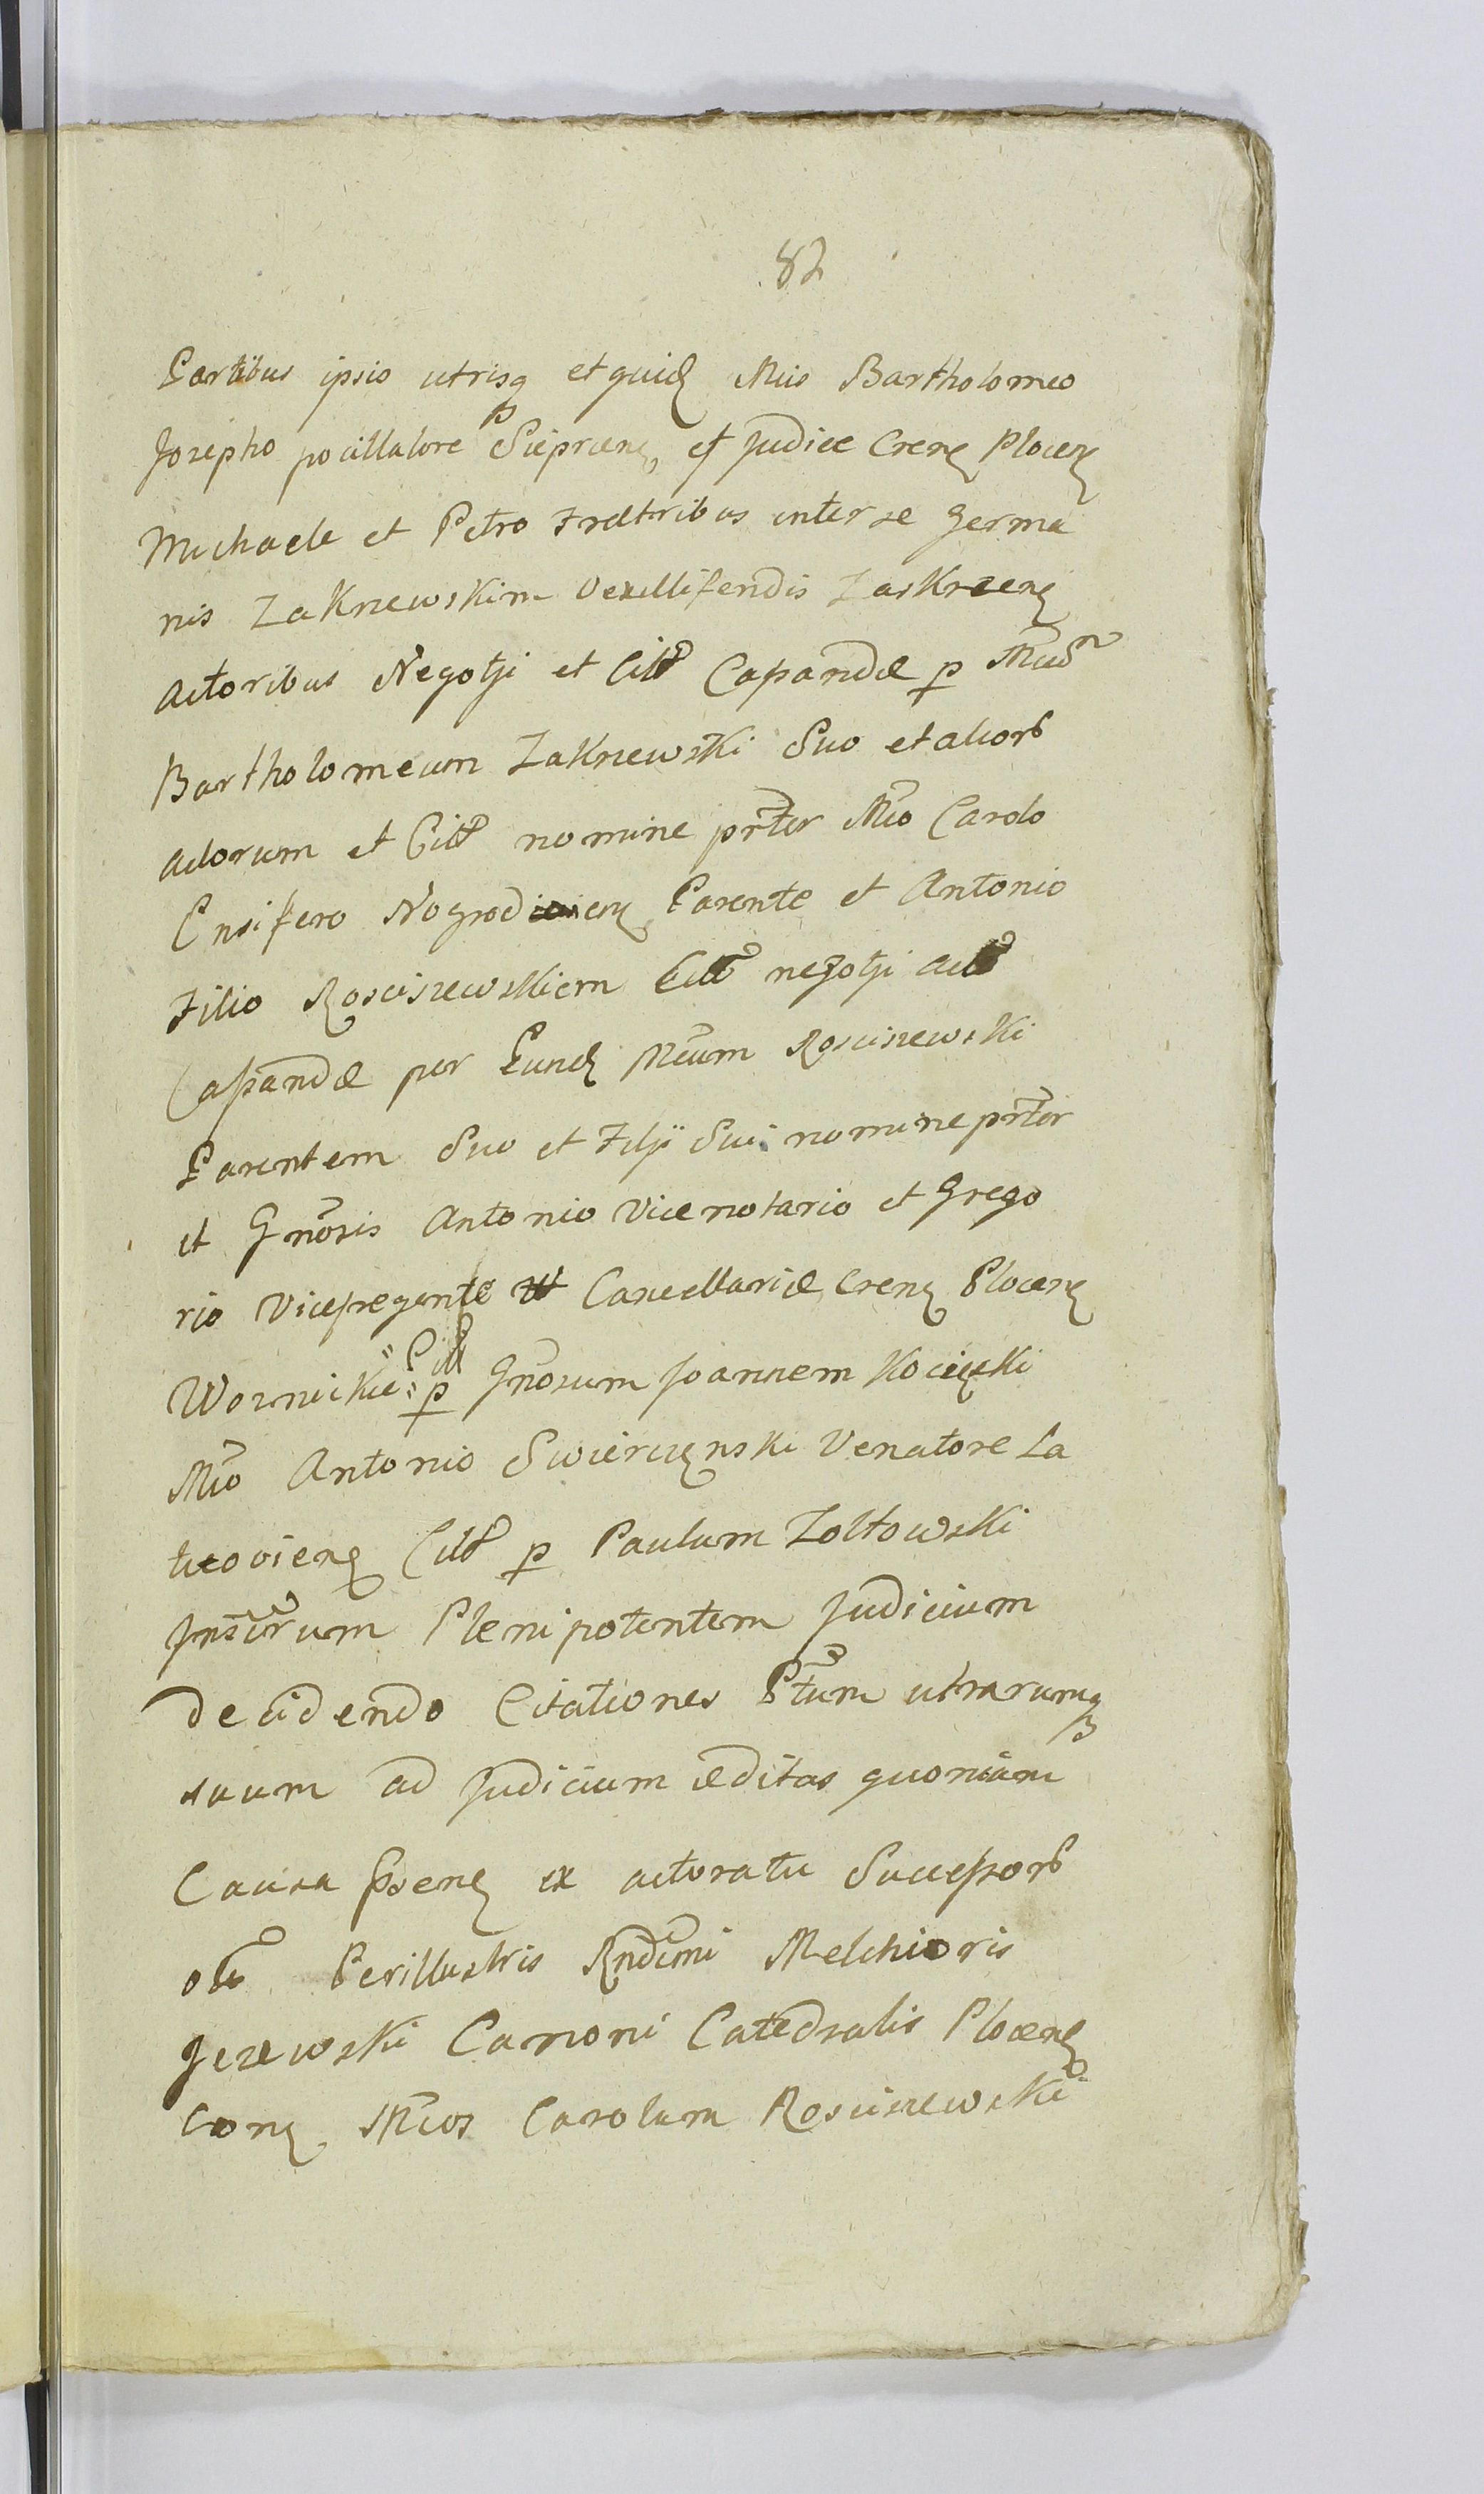 82
Partibus ipsis utrisq et quid Mcis Bartholomeo
Josepho pocillatore Sieprcens, et Judice Crens Plocens
Michaele et Petro Fratribus inter se germa
nis Zakrzewskim Vexilliferidis Zaskrzens
actoribus Negotji et Citt Capandæ p Mcum
Bartholomeum Zakrzewski Suo et alior
actorum et Citt nomine prter Mco Carolo
Ensifero Nogrodicens Parente et Antonio
Filio Rosciszewskiem Citt negotji act
Capandæ per Eund Mcum Rosciszewski
Parentem Suo et Filji Sui nomine prter
et Gnosis Antonio Vicenotario et Grego
rio Vicepregente Cancellariæ Crens Plocens
Woznickie Citt p Gnosum Joannem Kocięski
Mco Antonio Swierczynski Venatore La
ticoviens Citt p Paulum Zoltowski
Plenipotentem Judicium
decidendo Citationes Ptium utrarumq
suum ad Judicium editas quoniam
Causa psens ex actoratu Successor
olt Perillustris Rndimi Melchioris
Jezewski Canoni Catedralis Plocens
cons Mcos Carolum Rosciszewski